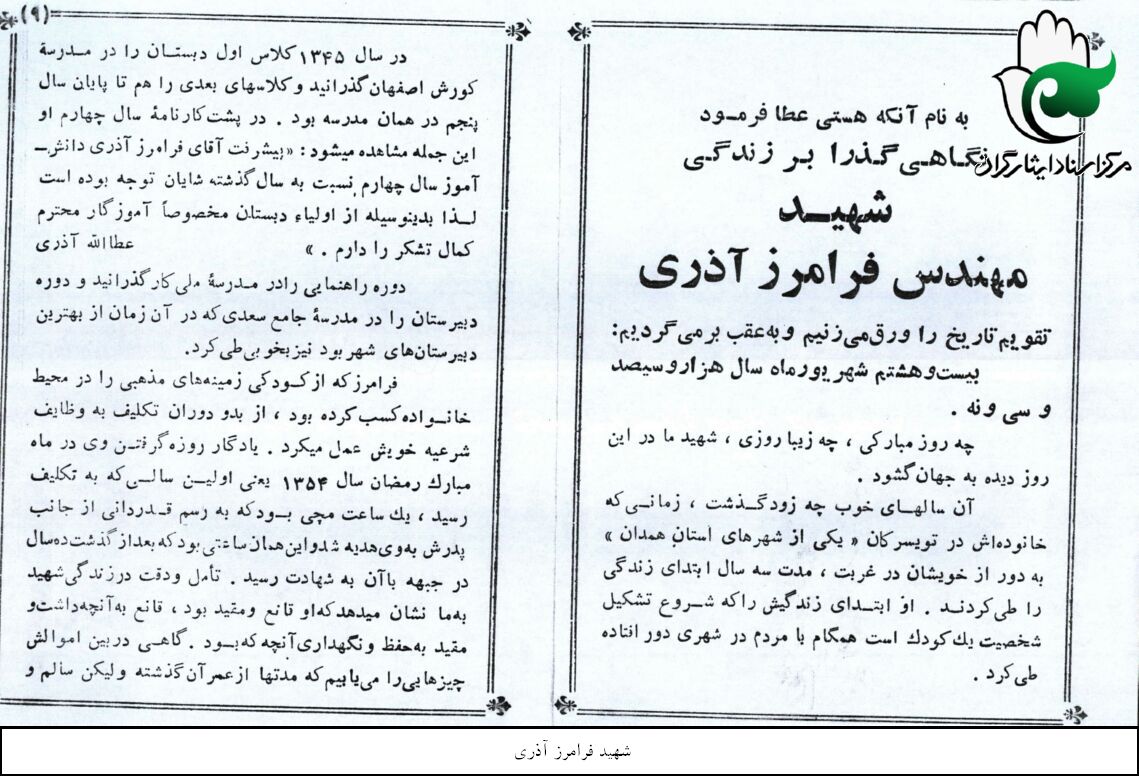 مرکز اسناد ایثارگران
به نام آنکه هستی عطا فرمـود
نگاهـی گـذرا بـر زندگـی
شهیـد
مهندس فرامرز آذری
تقویم تاریخ را ورق می‌زنیم و به عقب برمی‌گردیم:
بیست و هشتم شهریورماه سال هزار و سیصد
و سی و نه .
چه روز مبارکی ، چه زیبا روزی ، شهید ما در این
روز دیده به جهان گشود .
آن سالهـای خوب چه زود گـذشت ، زمانـی که
خانواده‌اش در تویسرکان « یکی از شهرهای استان همدان »
به دور از خویشان در غربت ، مدت سه سال ابتدای زندگی
را طی کردنـد . او ابتـدای زندگیش را که شـروع تشکیل
شخصیت یك کودك است همگام با مردم در شهری دور افتاده
طی کرد .
(۹)
در سال ۱۳۴۵ کلاس اول دبستـان را در مـدرسۀ
کورش اصفهان گذرانید و کلاسهای بعدی را هم تا پایان سال
پنجم در همان مدرسه بود . در پشت کارنامۀ سال چهارم او
این جمله مشاهده میشود : «پیشرفت آقای فرامرز آذری دانش‌ـ
آموز سال چهارم نسبت به سال گذشته شایان توجه بوده است
لـذا بدینوسیله از اولیاء دبستان مخصوصاً آموزگار محترم
کمال تشکر را دارم . » عطاالله آذری
دوره راهنمایی را در مـدرسۀ ملی کار گذرانید و دوره
دبیرستان را در مدرسۀ جامع سعدی که در آن زمان از بهترین
دبیرستان‌های شهر بود نیز بخوبی طی کرد.
فرامرز که از کـودکی زمینه‌های مذهبی را در محیط
خانـواده کسب کرده بود ، از بدو دوران تکلیف به وظایف
شرعیه خویش عمل میکرد . یادگار روزه گرفتـن وی در ماه
مبارك رمضان سال ۱۳۵۴ یعنی اولیـن سالـی که به تکلیف
رسید ، یك ساعت مچی بـود که به رسم قـدردانی از جانب
پدرش به وی هدیه شد و این همان ساعتی بود که بعد از گذشت ده سال
در جبهه با آن به شهادت رسید . تأمل و دقت در زندگی شهید
به ما نشان میدهد که او قانع و مقید بود ، قانع به آنچه داشت و
مقید به حفظ و نگهداری آنچه که بـود . گاهـی در بین اموالش
چیزهایی را می‌یابیم که مدتها از عمر آن گذشته ولیکن سالم و
شهید فرامرز آذری